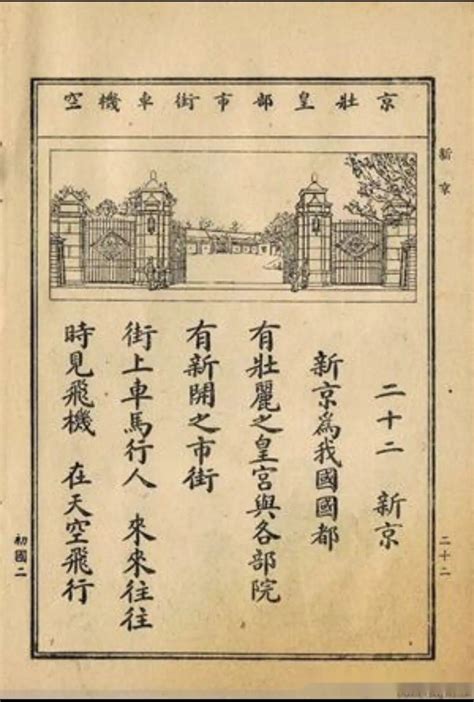 京壯皇部市街車機空
新京
二十二 新京
新京為我國國都
有壯麗之皇宮與各部院
有新開之市街
街上車馬行人 來來往往
時見飛機 在天空飛行
二十二
初國二